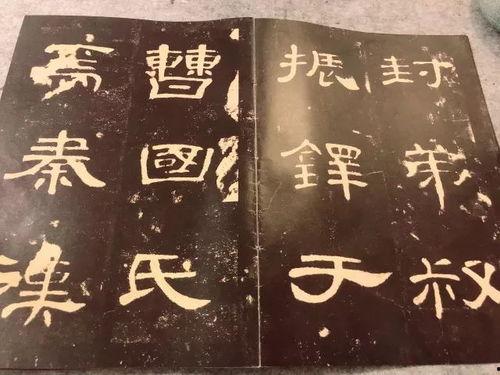 封弟叔
振鐸于
曹國氏
焉秦漢